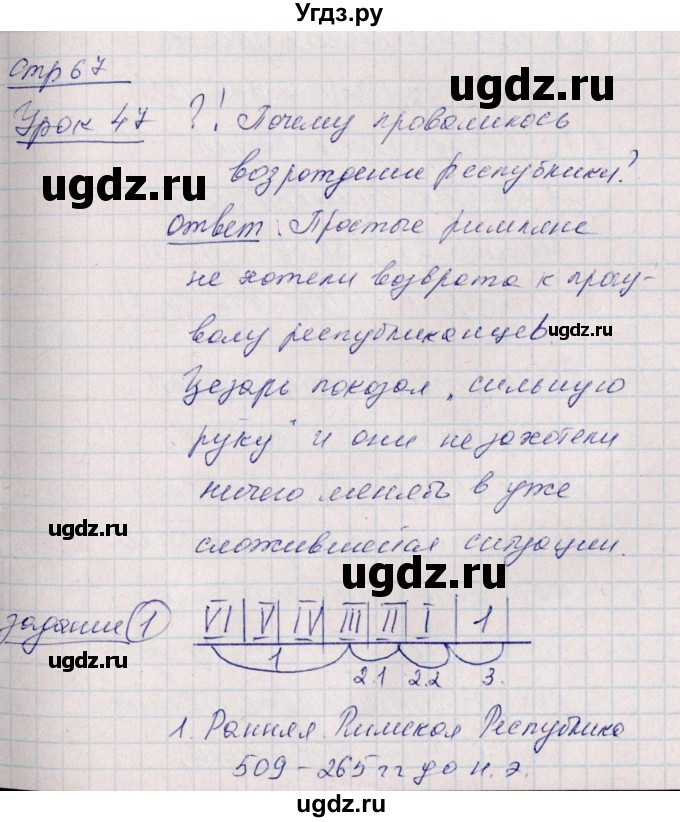 Угдз.ру
стр 67
Урок 47 ?! Почему провалилось
возрождение республики?
Ответ: Простые римляне
не хотели возврата к прои-
зволу республиканцев.
Цезарь показал „сильную
руку" и они не захотели
ничего менять в уже
сложившейся ситуации.
задание 1 VI V IV III II I 1
1 2.1 2.2 3.
1. Ранняя Римская Республика
509 – 265 гг до н. э.
ugdz.ru
ugdz.ru
ugdz.ru
ugdz.ru
ugdz.ru
ugdz.ru
ugdz.ru
ugdz.ru
ugdz.ru
ugdz.ru